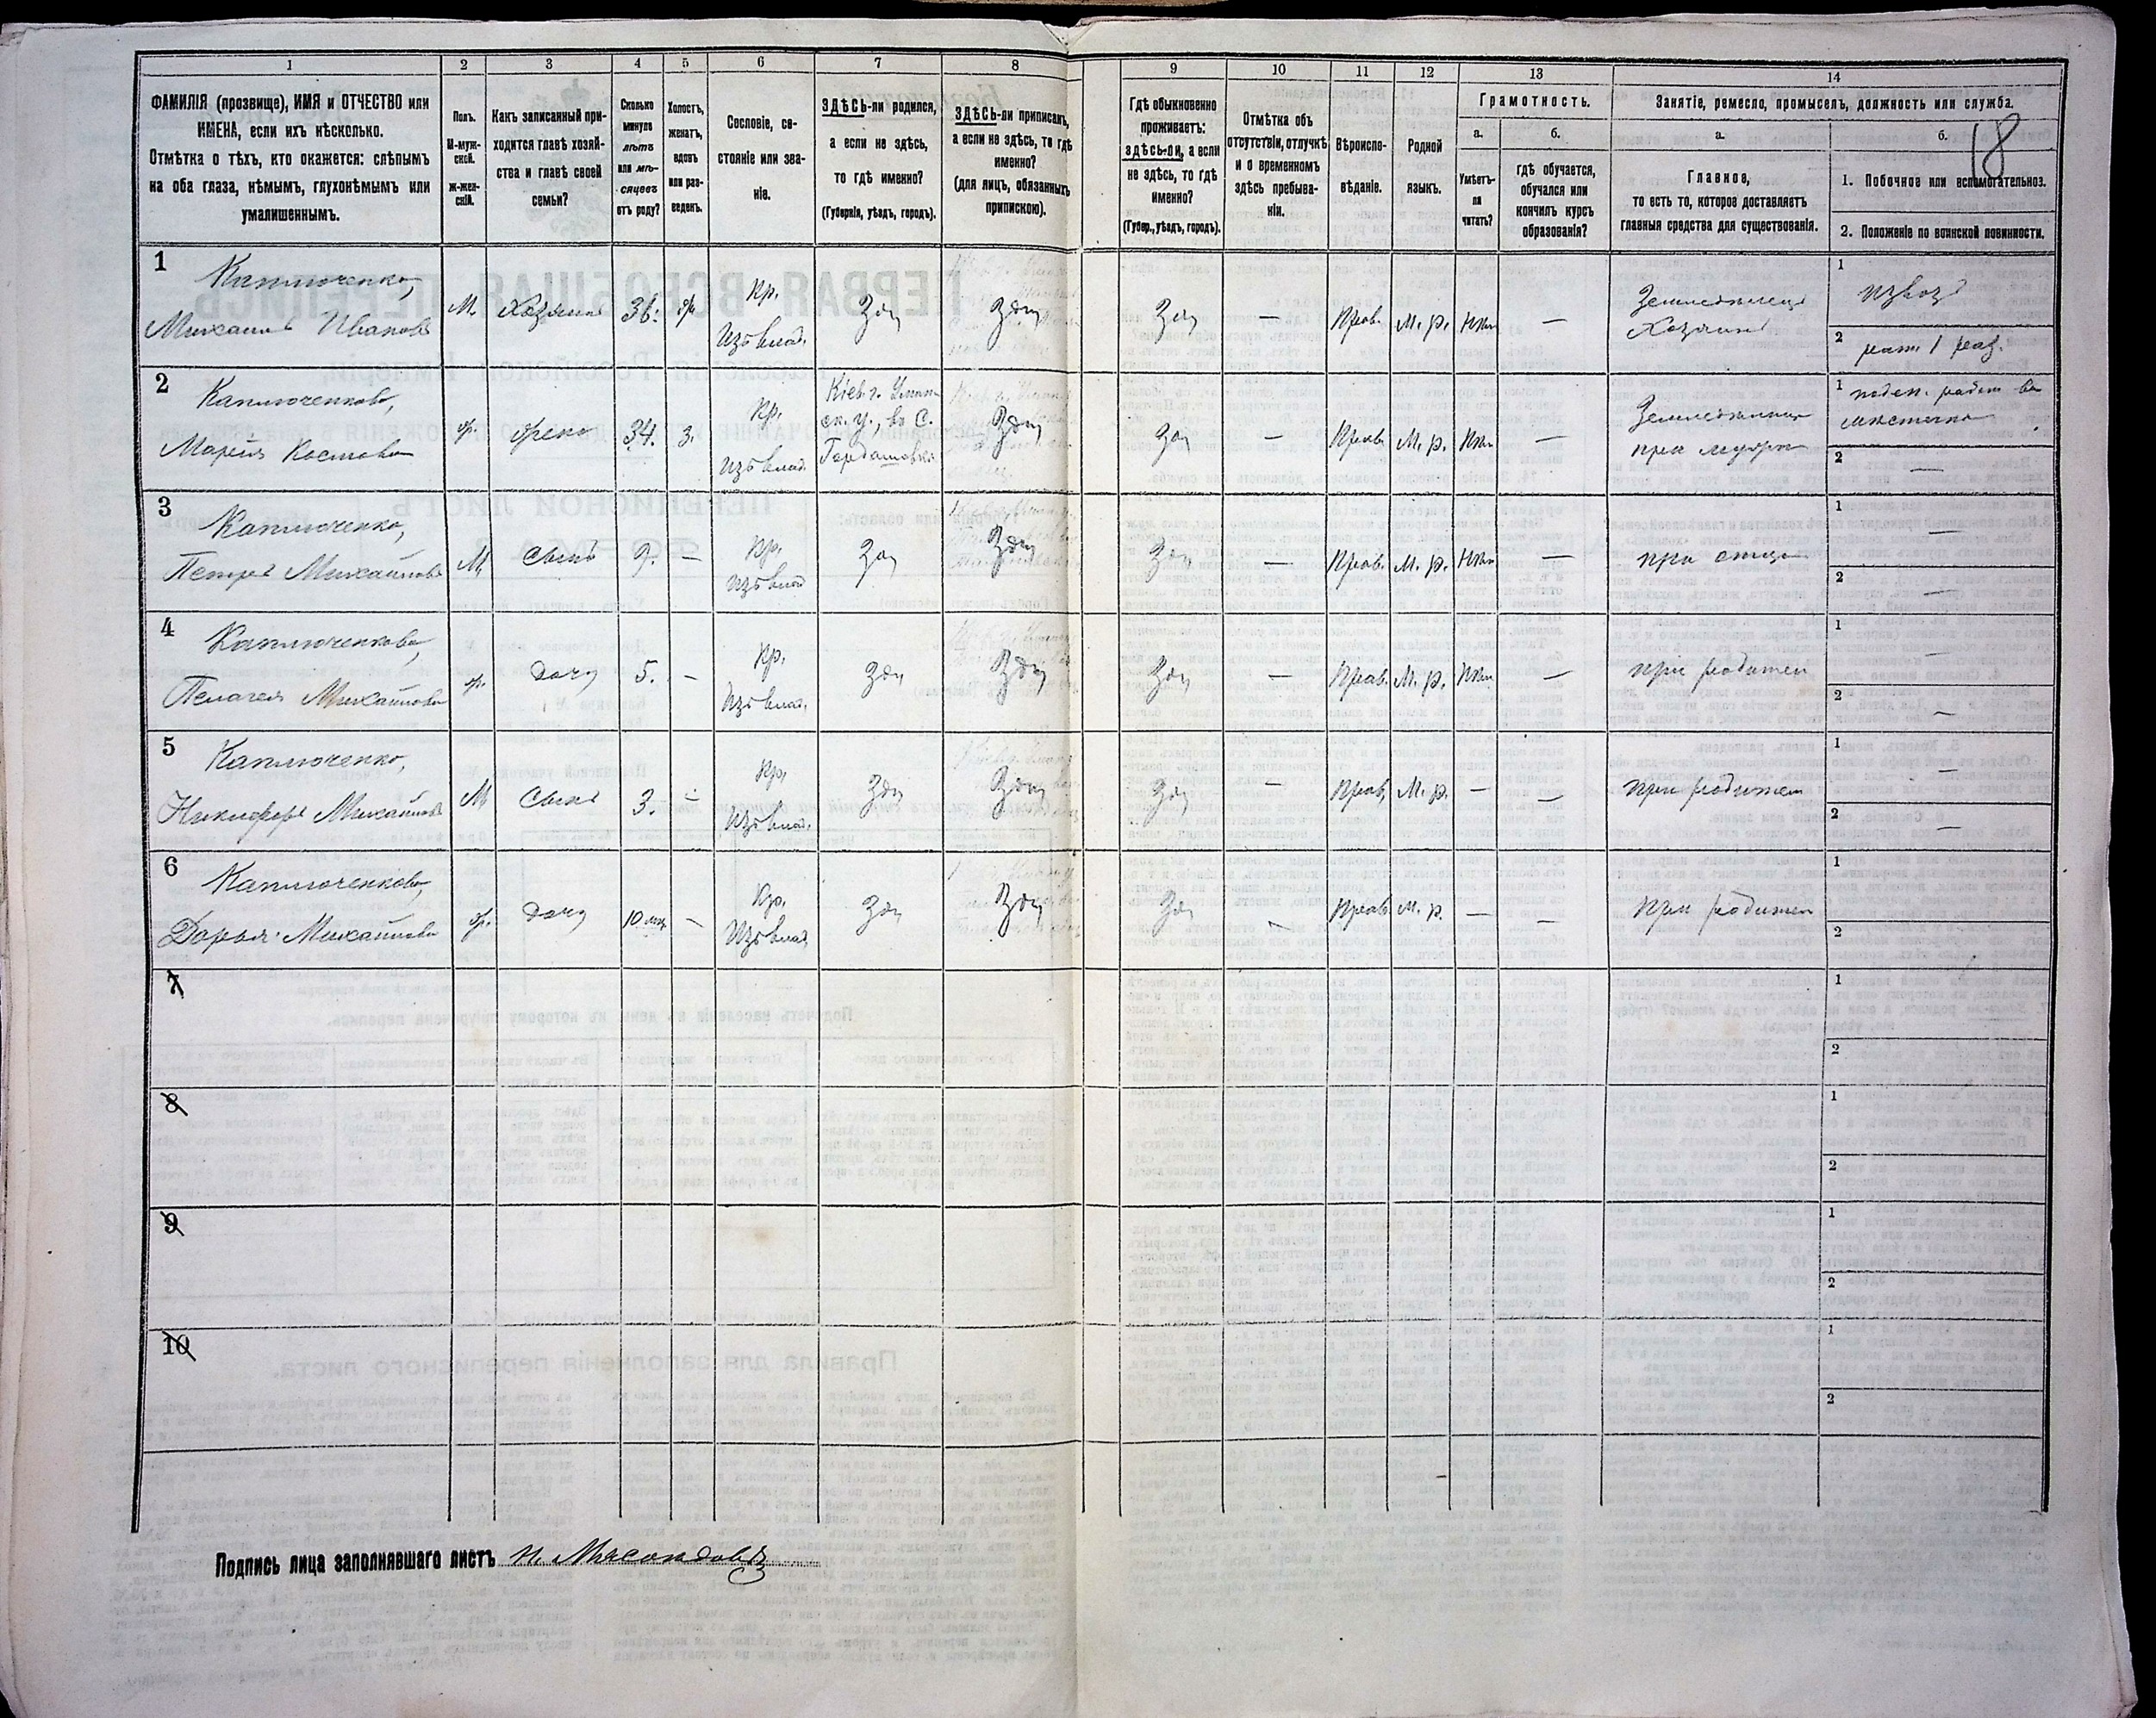 1 2 3 4 5 6 7 8 9 10 11 12 13 14
ФАМИЛІЯ (прозвище), ИМЯ и ОТЧЕСТВО или
ИМЕНА, если ихъ нѣсколько.
Отмѣтка о тѣхъ, кто окажется: слѣпымъ
на оба глаза, нѣмымъ, глухонѣмымъ или
умалишеннымъ.
Полъ.
М-муж-
ской.
Ж-жен-
скій.
Какъ записанный при-
ходится главѣ хозяй-
ства и главѣ своей
семьи?
Сколько
минуло
лѣтъ
или мѣ-
сяцевъ
отъ роду?
Холостъ,
женатъ,
вдовъ
или раз-
веденъ.
Сословіе, со-
стояніе или зва-
ніе.
ЗДѢСЬ-ли родился,
а если не здѣсь,
то гдѣ именно?
(Губернія, уѣздъ, городъ).
ЗДѢСЬ-ли приписанъ,
а если не здѣсь, то гдѣ
именно?
(для лицъ, обязанныхъ
припискою).
Гдѣ обыкновенно
проживаетъ:
здѣсь-ли, а если
не здѣсь, то гдѣ
именно?
(Губер., уѣздъ, городъ).
Отмѣтка объ
отсутствіи, отлучкѣ
и о временномъ
здѣсь пребыва-
ніи.
Вѣроиспо-
вѣданіе.
Родной
языкъ.
Грамотность.
а.
Умѣетъ-
ли
читать?
б.
гдѣ обучается,
обучался или
кончилъ курсъ
образованія?
Занятіе, ремесло, промыселъ, должность или служба.
а.
Главное,
то есть то, которое доставляетъ
главныя средства для существованія.
б.
18
1. Побочное или вспомогательное.
2. Положеніе по воинской повинности.
1
Каплюченко,
Михаилъ Ивановъ
М. Хозяинъ 36. ж.
Кр.
Изъ влад.
Здѣ Здѣ Здѣ — Прав. М. р. Нѣт —
Земледѣлецъ
Хозяинъ
1 извозъ
2 рат. 1 раз.
2
Каплюченкова,
Марѳія Костова
ж. жена 34. з.
Кр.
Изъ влад.
Кіев. г. Уман
ск. у., въ С.
Гордашовка
Здѣ Здѣ — Прав. М. р. Нѣт —
Земледѣлица
при мужѣ
1 поден. работ. въ
мѣстечкѣ
2 —
3
Каплюченко,
Петръ Михайловъ
М. Сынъ 9. —
Кр.
Изъ влад.
Здѣ Здѣ Здѣ — Прав. М. р. Нѣт —
при отцѣ
1 —
2 —
4
Каплюченкова,
Пелагея Михайлова
ж. Дочь 5. —
Кр.
Изъ влад.
Здѣ Здѣ Здѣ — Прав. М. р. Нѣт —
при родител
1 —
2 —
5
Каплюченко,
Никифоръ Михайловъ
М Сынъ 3. —
Кр.
Изъ влад.
Здѣ Здѣ Здѣ — Прав. М. р. — —
при родител
1 —
2 —
6
Каплюченкова,
Дарья Михайлова
ж. Дочь 10 мѣс. —
Кр.
Изъ влад.
Здѣ Здѣ Здѣ — Прав. М. р. — —
при родител
1
2
7
1
2
8
1
2
9
1
2
10
1
2
Подпись лица заполнявшаго листъ Н. Мясоѣдовъ